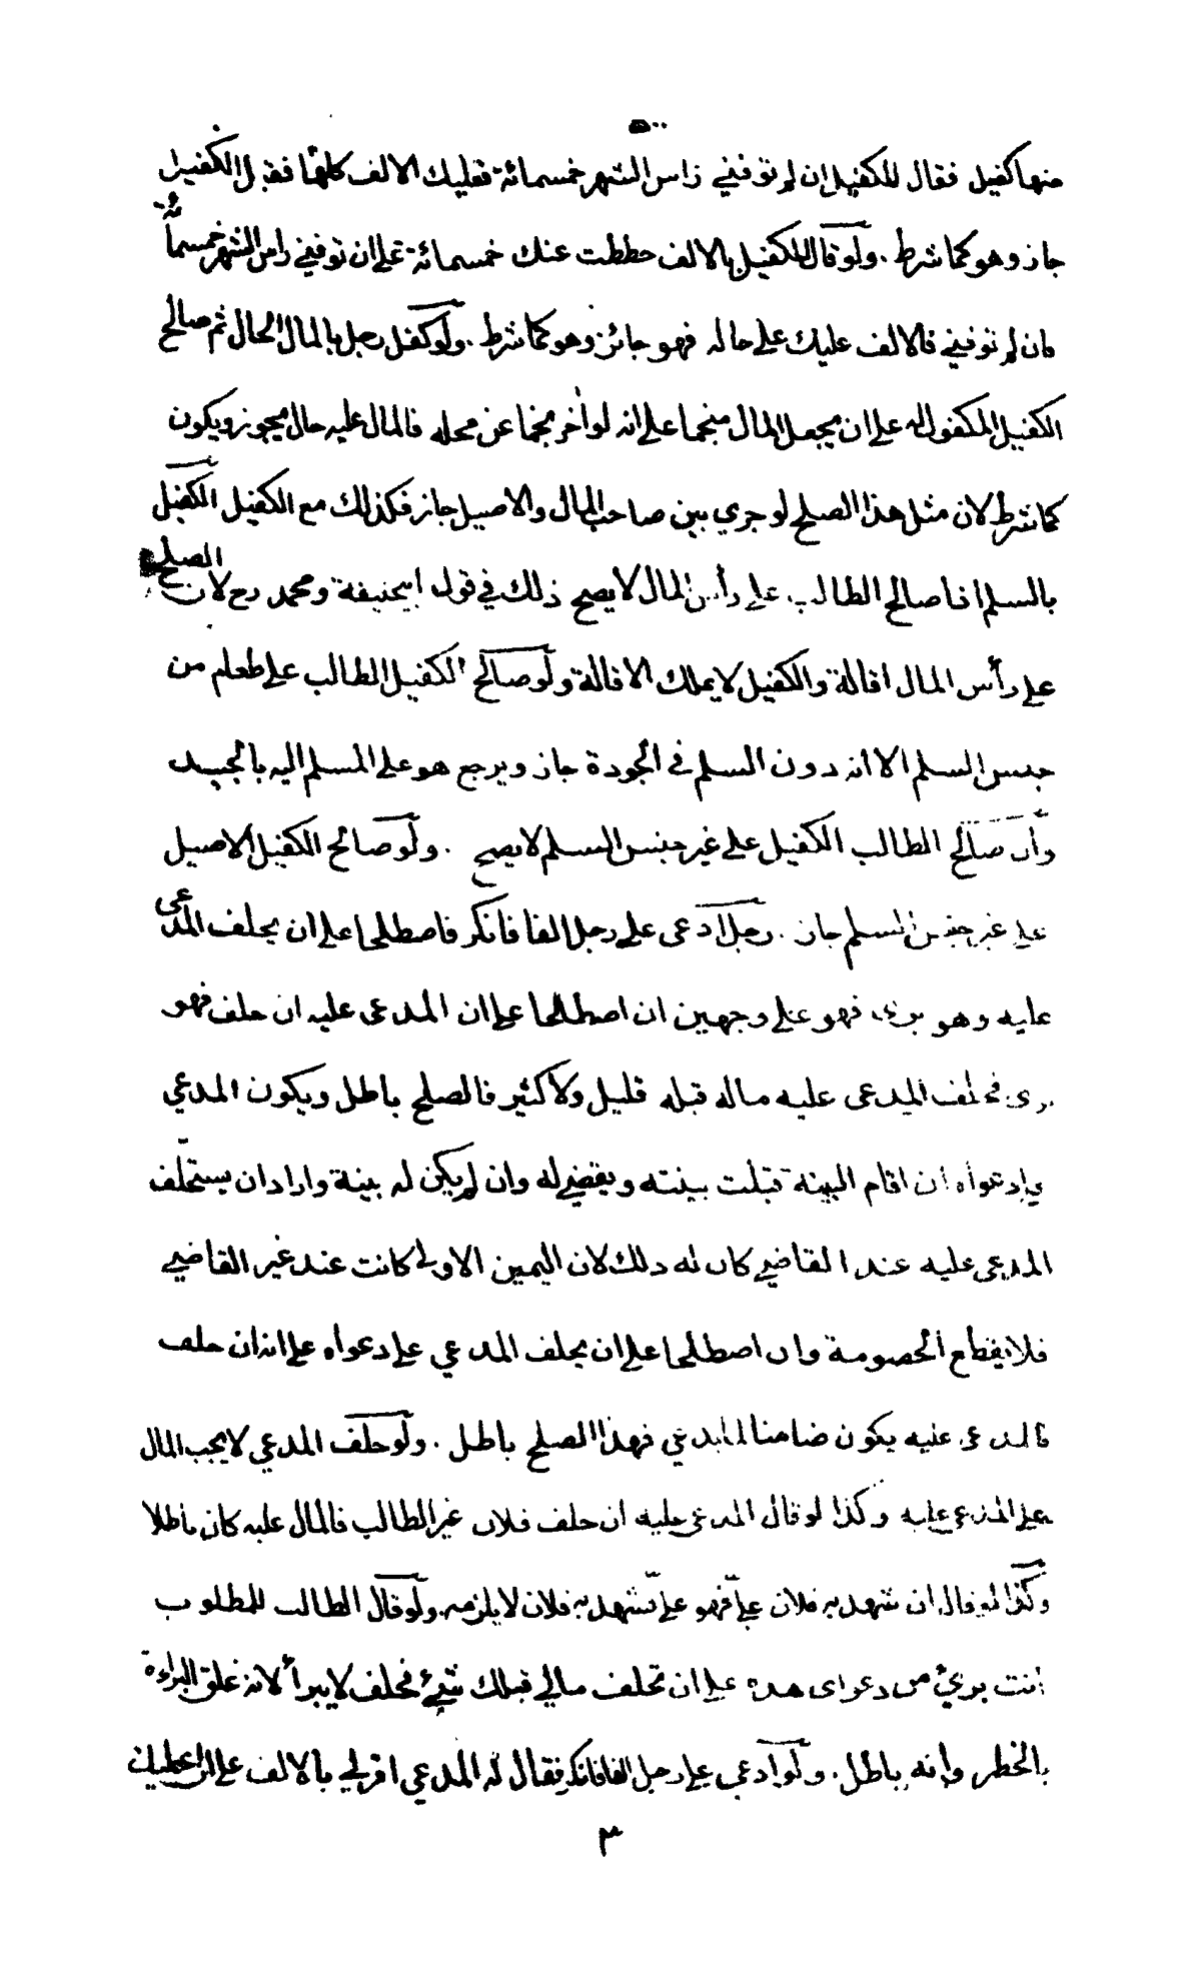 منها كفيل فقال للكفيل ان لم توفني راس الشهر خمسمائة فعليك الالف كلها فقبل الكفيل
جاز وهو كما شرط . ولو قال للكفيل بالالف حططت عنك خمسمائة على ان توفيني راس الشهر خمسمائة
فان لم توفيني فالالف عليك على حاله فهو جائز وهو كما شرط . ولو كفل رجل بالمال الحال ثم صالح
الكفيل المكفول له على ان يجعل المال منجما على انه لو اخر نجما عن محله فالمال عليه حال يجوز ويكون
كما شرط لان مثل هذا الصلح لو جرى بين صاحب المال والاصيل جاز فكذلك مع الكفيل الكفيل
بالسلم اذا صالح الطالب على رأس المال لا يصح ذلك في قول ابيحنيفة ومحمد رح لان الصلح
على رأس المال اقالة والكفيل لا يملك الاقالة ولو صالح الكفيل الطالب على طعام من
جنس السلم الا انه دون السلم في الجودة جاز ويرجع هو على المسلم اليه بالجيد
وان صالح الطالب الكفيل على غير جنس السلم لا يصح . ولو صالح الكفيل الاصيل
على غير جنس السلم جاز . رجل ادعى على رجل الفا فانكر فاصطلحا على ان يحلف المدعى
عليه وهو برئ فهو على وجهين ان اصطلحا على ان المدعى عليه ان حلف فهو
برئ فحلف المدعى عليه ماله قبله قليل ولا كثير فالصلح باطل ويكون المدعي
على دعواه ان اقام البينة قبلت بينته ويقضي له وان لم يكن له بينة واراد ان يستحلف
المدعى عليه عند القاضي كان له ذلك لان اليمين الاولى كانت عند غير القاضي
فلا يقطع الخصومة وان اصطلحا على ان يحلف المدعي على دعواه على انه ان حلف
فالمدعى عليه يكون ضامنا لما يدعي فهذا الصلح باطل . ولو حلف المدعي لا يجب المال
على المدعى عليه وكذا لو قال المدعى عليه ان حلف فلان غير الطالب فالمال عليه كان باطلا
وكذا لو قال ان شهد به فلان علي فهو علي فشهد به فلان لا يلزمه . ولو قال الطالب للمطلوب
انت برئ من دعواى هذه على ان تحلف مالي قبلك شئ فحلف لا يبرأ لانه علق البراءة
بالخطر وانه باطل . ولو ادعى على رجل الفا فانكر فقال له المدعي اقر لي بالالف على ان اعطيك
٣